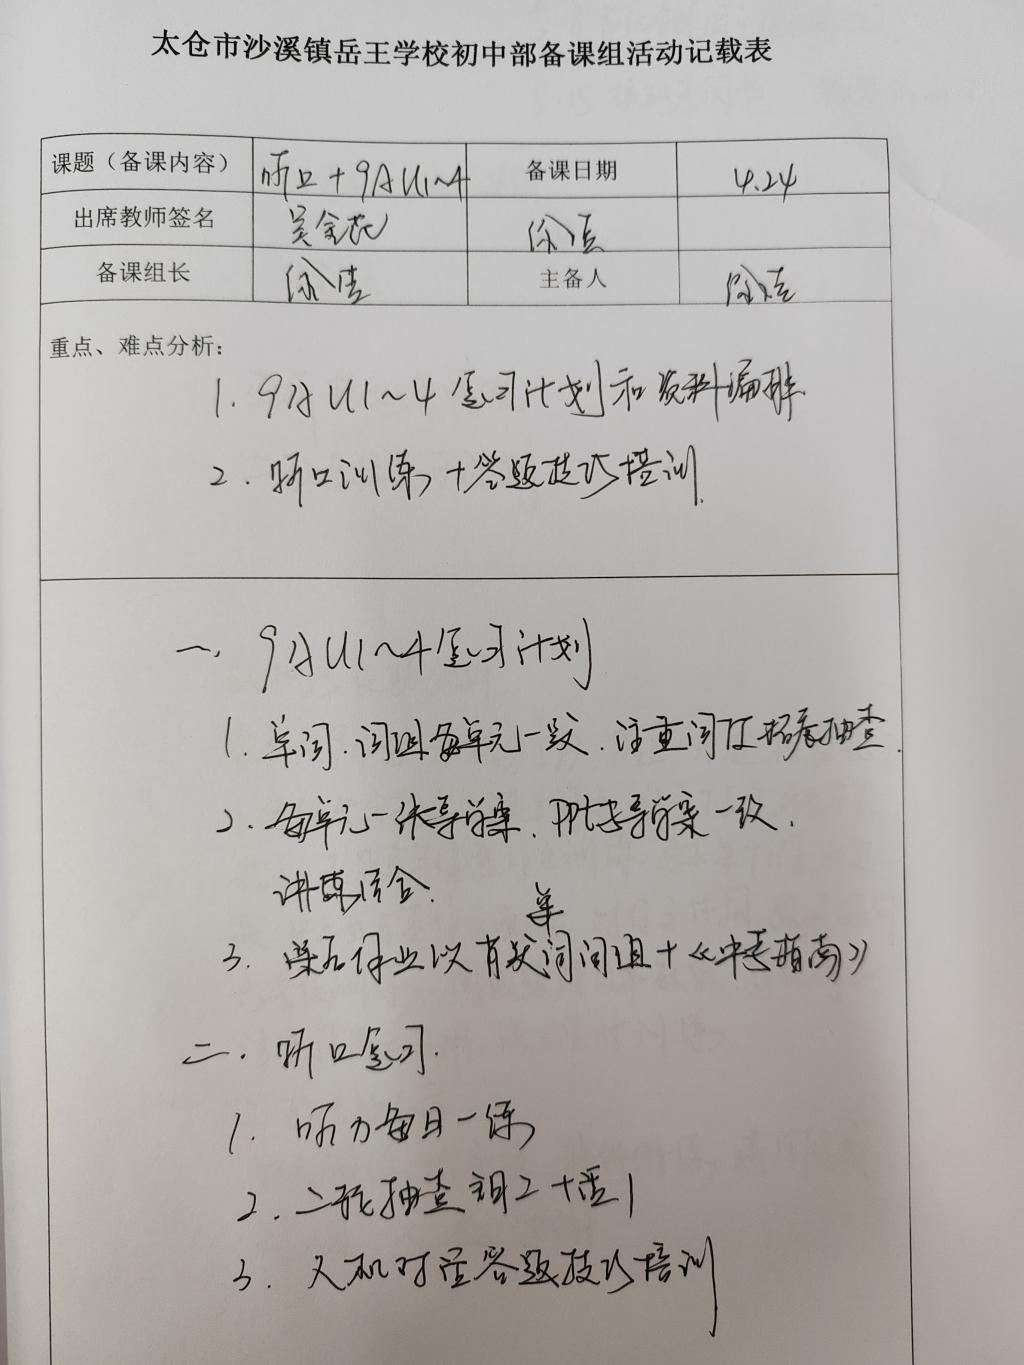 太仓市沙溪镇岳王学校初中部备课组活动记载表
课题（备课内容） 听口+9A U1~4 备课日期 4.24
出席教师签名 吴全花 徐洁
备课组长 徐洁 主备人 徐洁
重点、难点分析：
1. 9A U1~4 复习计划和资料编排
2. 听口训练+答题技巧培训.
一. 9A U1~4 复习计划
1. 单词. 词组每单元一过. 注重词汇拓展抽查.
2. 每单元一张导学案. PPT与导学案一致.
讲练结合.
3. 课后作业以首发单词词组+《中考指南》
二. 听口复习.
1. 听力每日一练
2. 二轮抽查 词2+话1
3. 人机对话答题技巧培训